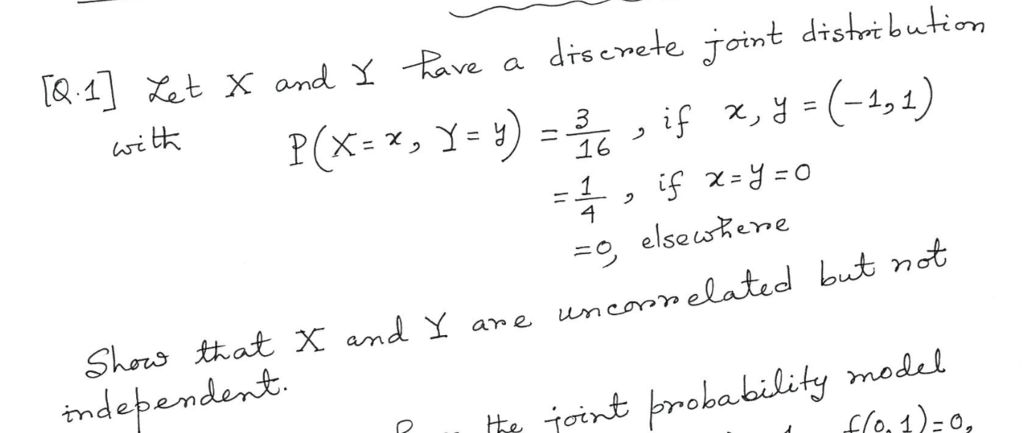 [Q.1] Let X and Y have a discrete joint distribution
with P(X=x, Y=y) = 3/16, if x, y = (-1,1)
= 1/4, if x=y=0
=0, elsewhere
Show that X and Y are uncorrelated but not
independent.
the joint probability model
f(0,1)=0,